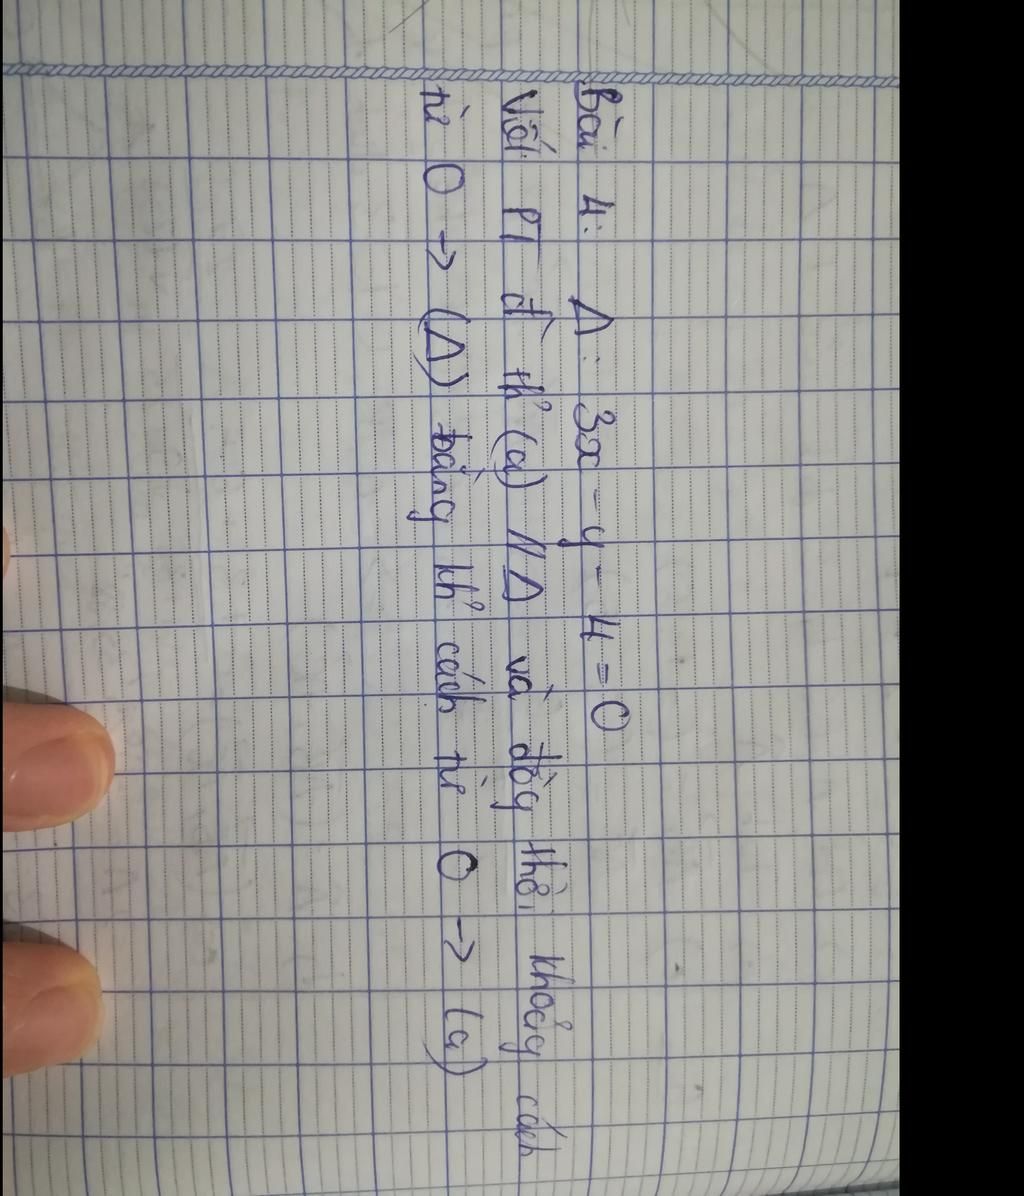 Bài 4: Δ: 3x - y - 4 = 0
Viết PT đ th² (a) // Δ và đồg thời khoảg cách
từ O → (Δ) bằng kh² cách từ O → (a)